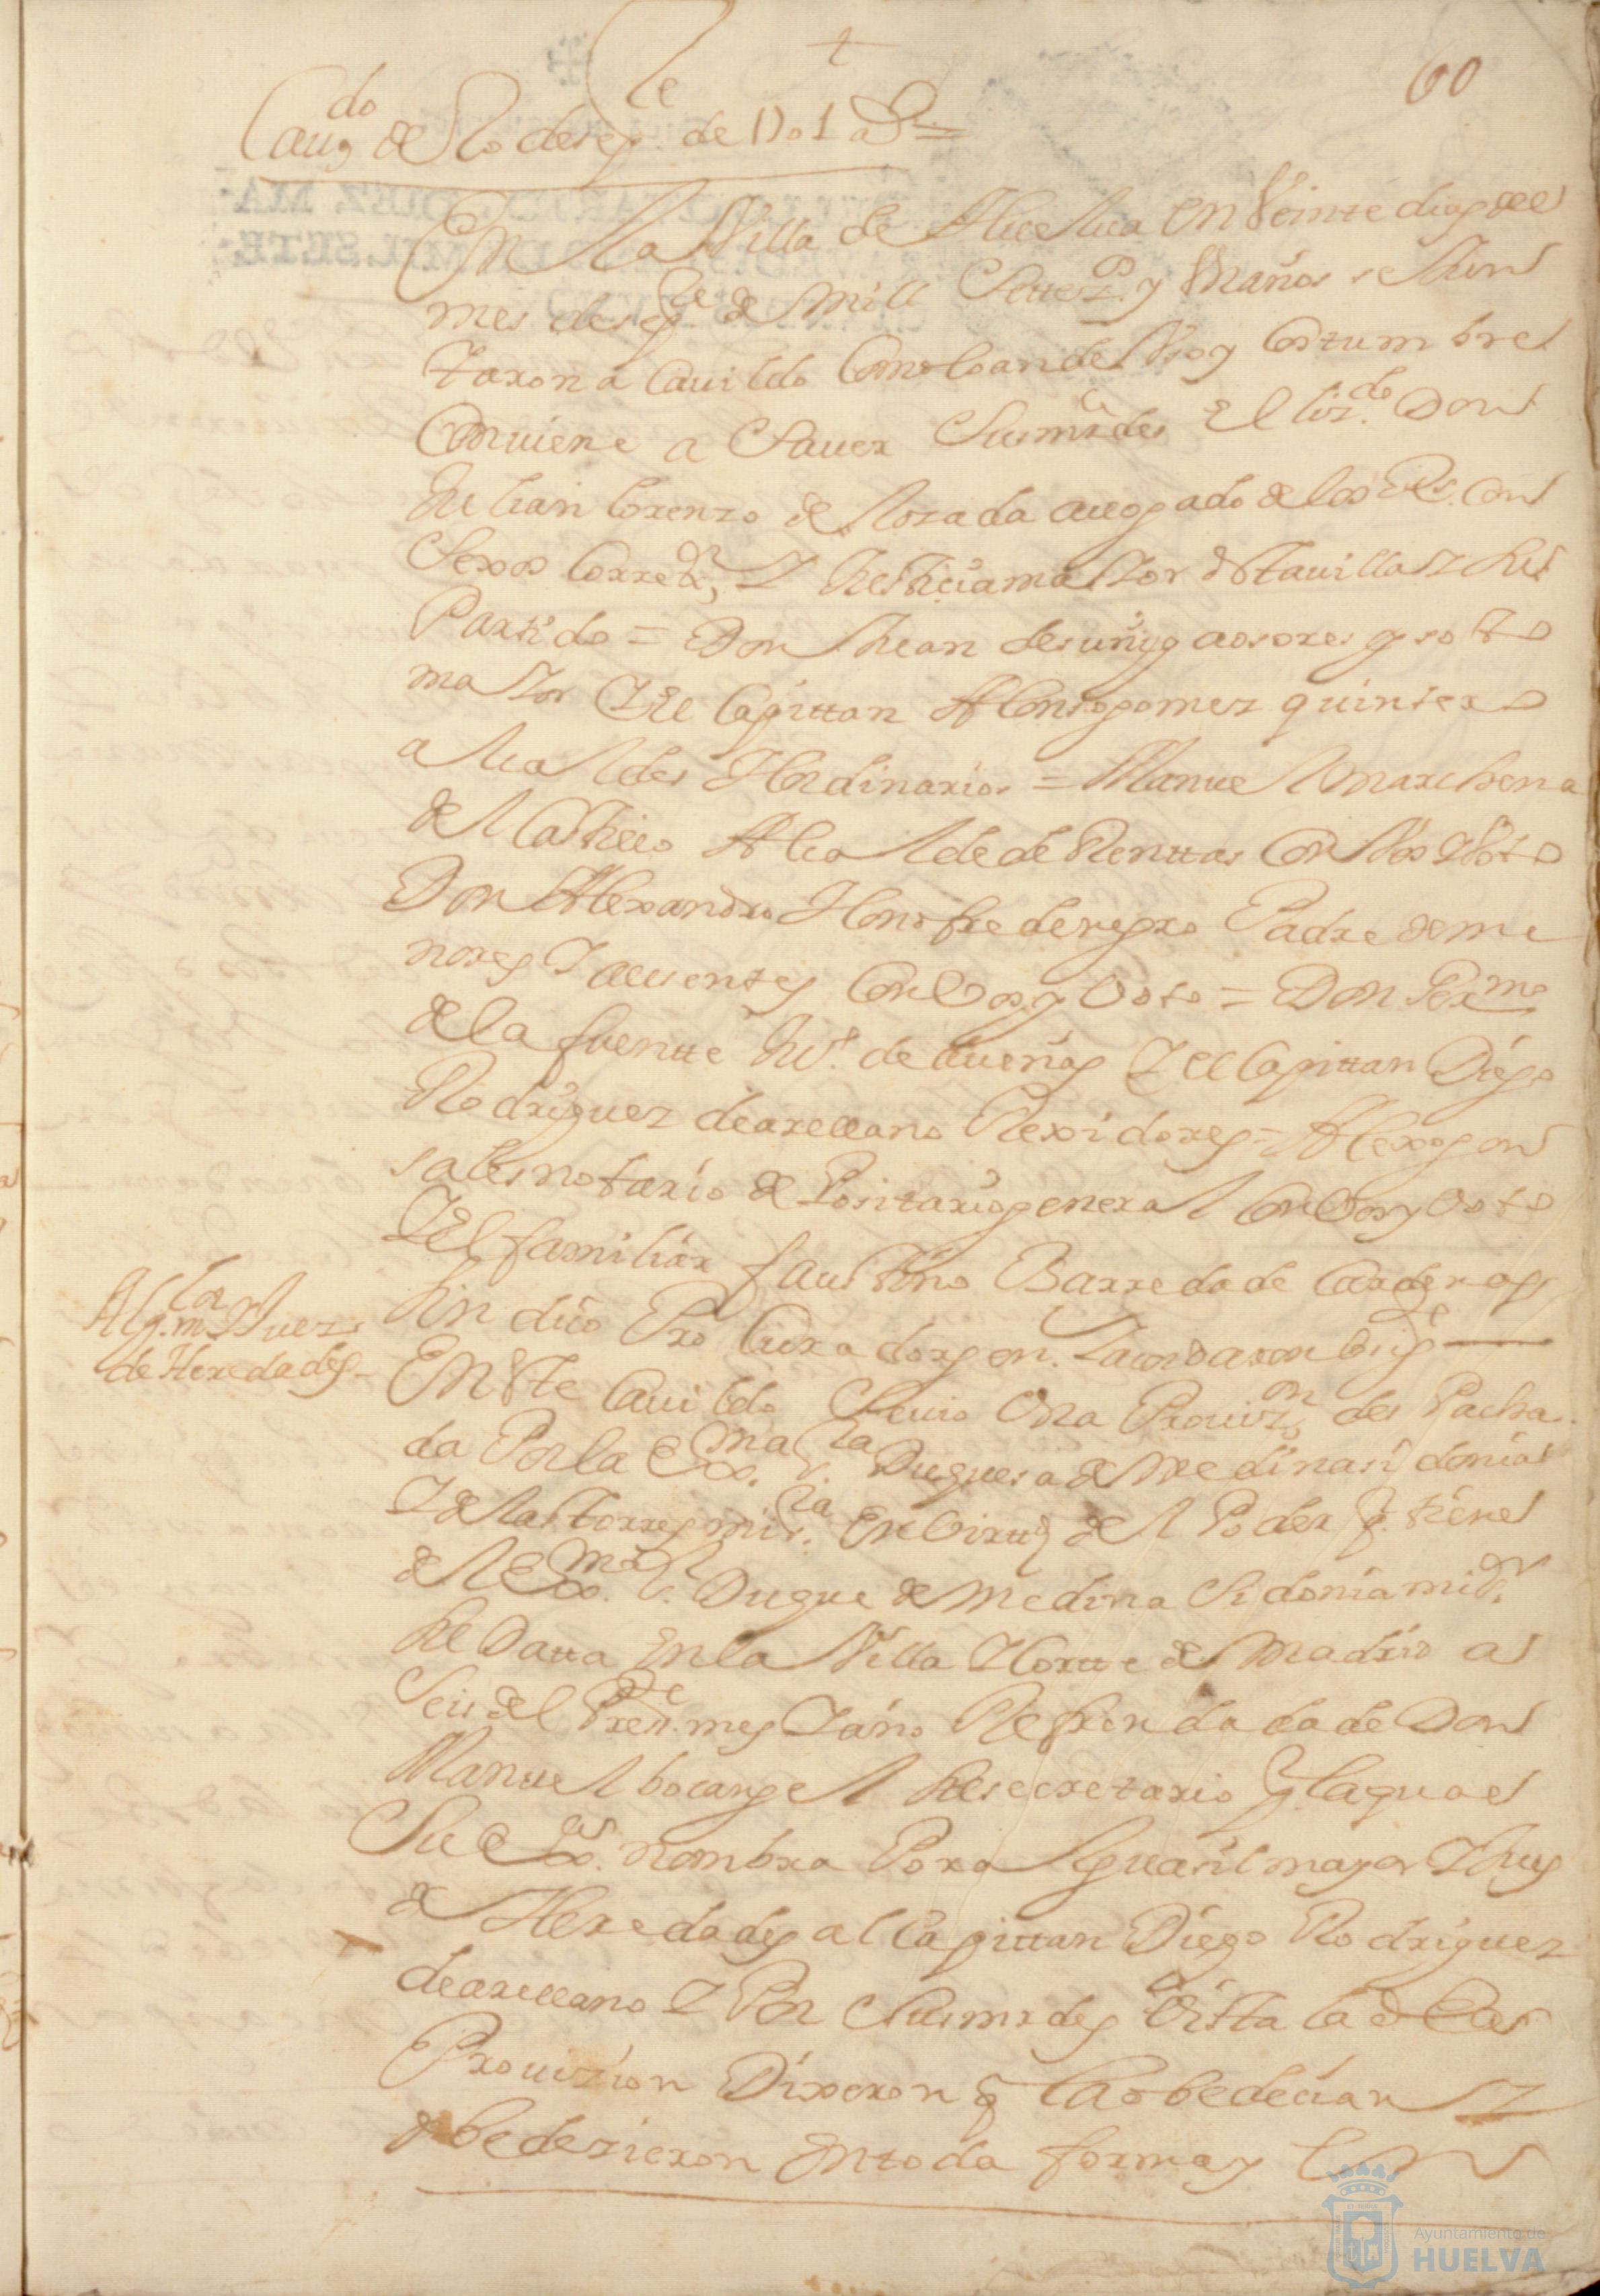 60
Cauᵈᵒ de 20 de sepᵉ. de 1701 aˢ =
En la Villa de Huelua en Veinte dias del
mes de sepᵉ de Mill Settezˢ y Un años se Jun
taron a Cauildo Como lo an de Vso y Costumbre
Conuiene a Sauer Susmrᶜdes El lizᵈᵒ. Don
Julian Lorenzo de Lozada auogado de los Rˢ. Con
Sexos Correxᵒʳ, I Justicia maior de sta uilla I su
Partido = Don Juan de suñiga osores y soto
maior I el Capittan Alonso gomez quintero
alcaldes Hordinarios = Manuel marchena
del Castillo Alcalde de Renttas Con Vos I Voto
Don Alexandro Honofre de negro Padre de me
nores I ausentes Con Vos y Voto = Don Gerᵐᵒ
de la fuentte hiˢ. de dueñas I el Capittan Diego
Rodriguez de arellano Rexidores = Alexo gon
sales notario de Positario general Con Vos y Voto
I El familiar faustino Barreda de Cardenas
sindico Pro Curador gen. I acordaron lo sigᵉ
Alg.ᵒʳ mʳ I Juez
de Heredades
En este Cauildo Se uio Vna Prouizᵒⁿ des Pacha
da Por la Exᵐᵃ. Sʳᵃ. Duquesa de Medinasidonia
I de las torres mi sʳᵃ. En Virtᵈ del Poder q. tiene
del Exᵐᵒ. Sʳ. Duque de Medina Sidonia mi Sʳ.
su Datta En la Villa I Cortte de Madrid a
Seis del Presᵗᵉ. mes I año Refrendada de Don
Manuel bocangel su secretario Por la qual
Su Exᵃ. nombra Por Alguasil mayor I Jues
de Heredades al Capittan Diego Rodriguez
de arellano I Por Susmrᶜdes Vista la dicha
Prouizion Dixeron q la obedecian I
obedezieron En toda forma y
Ayuntamiento de
HUELVA